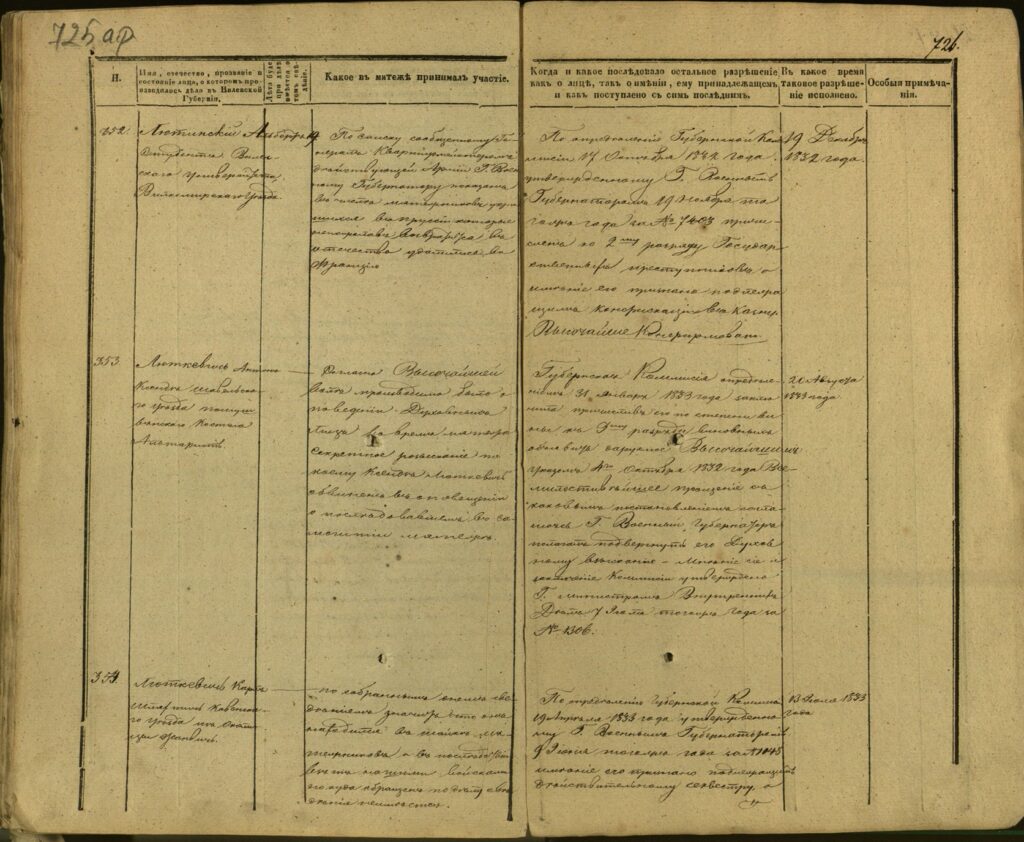 725 ар
726.
И.
Имя, отечество, прозваніе и
состояніе лица, о которомъ про-
изводилось дѣло въ Виленской
Губерніи.
Какое въ мятежѣ принималъ участіе.
Когда и какое послѣдовало остальное разрѣшеніе
какъ о лицѣ, такъ о имѣніи, ему принадлежащемъ
и какъ поступлено съ симъ послѣднимъ.
Въ какое время
таковое разрѣше-
ніе исполнено.
Особыя примѣча-
нія.
352.
Студентъ Вилен-
скаго Университета
Вилкомирскаго Уѣзда
19
По записку сообщенному Ге-
нералъ Квартирмейстеромъ
дѣйствующей Арміи Г. Воен-
ному Губернатору показанъ
въ числѣ мятежниковъ
въ Пруссіи которые
въ
отечество удалились во
Францію
По опредѣленію Губернской Ком-
мисіи 17 Октября 1832 года
утвержденному Г. Военнымъ
Губернаторомъ 19 Ноября то-
гожъ года за № 7403 причи-
сленъ ко 2му разряду Государ-
ственныхъ преступниковъ, а
имѣніе его признано подлежа-
щимъ конфискаціи въ Казну.
Высочайше Конфирмовано.
19 Декабря
1832 года.
353
Люткевичъ Антоній
Ксендзъ Шавельска-
го уѣзда
Костела
Алтаристъ
Согласно Высочайшей
воли производимо было о
поведеніи Духовнаго
лица во время мятежа
секретное розысканіе по
коему Ксендзъ Люткевичъ
обвиненъ въ оповѣщеніи
о послѣдовавшемъ въ Са-
могитіи мятежѣ.
Губернская Коммисія опредѣле-
ніемъ 31 Января 1833 года заклю-
чила причислить его по степени ви-
ны къ 3му разряду виновныхъ
Высочайшимъ
указомъ 4го Октября 1832 года Все-
милостивѣйшее прощеніе съ
каковымъ постановленіемъ согла-
шаясь Г. Военный Губернаторъ
полагалъ подвергнуть его Духов-
ному взысканію – Мнѣніе сіе и
заключеніе Коммисіи утверждено
Г. Министромъ Внутреннихъ
Дѣлъ 7 Іюля тогожъ года за
№ 1306.
20 Августа
1833 года
354.
Люткевичъ Карлъ
Шляхтичъ Ковенска-
го уѣзда изъ околи-
цы
По собраннымъ о немъ свѣ-
дѣніямъ значитъ что онъ
находился въ шайкѣ мя-
тежниковъ а въ послѣдствіи
войсками
но куда обращенъ по дѣлу свѣ-
дѣнія неимѣется.
По опредѣленію Губернской Коммисіи
19 Апрѣля 1833 года утвержденно-
му Г. Военнымъ Губернаторомъ
9 Іюня тогожъ года за № 1045
имѣніе его признано подлежащимъ
дѣйствительному секвестру, о
13 Іюля 1833
года